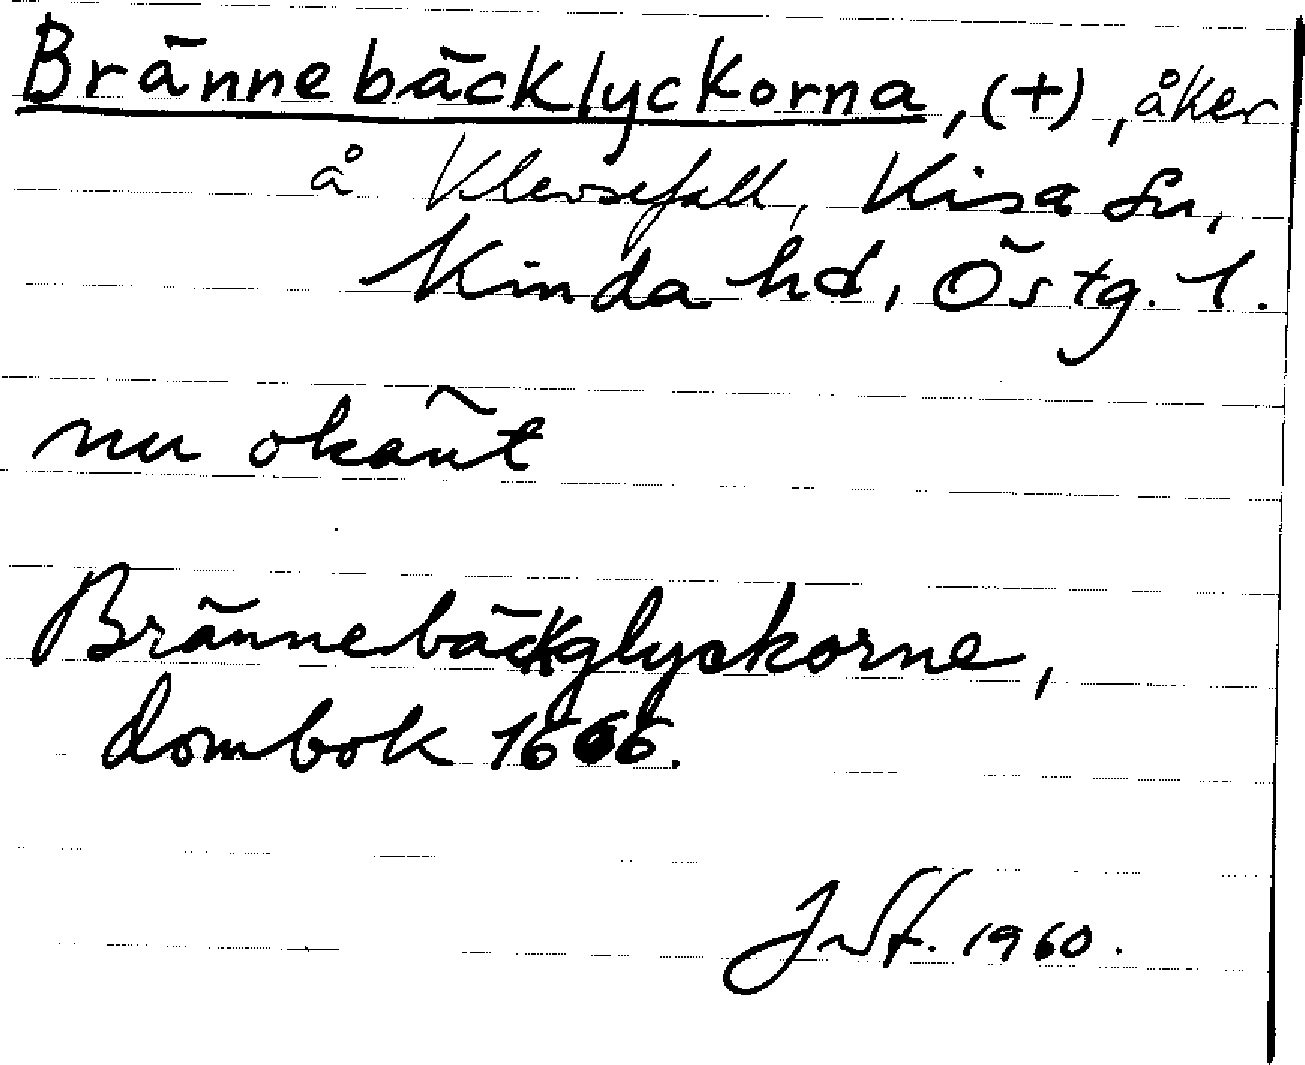 Brännebäcklyckorna, (+), åker
å Klevsefall, Kisa sn,
Kinda hd, Östg. l.
nu okänt
Brännebäckglyckorne,
dombok 1666.
1960.